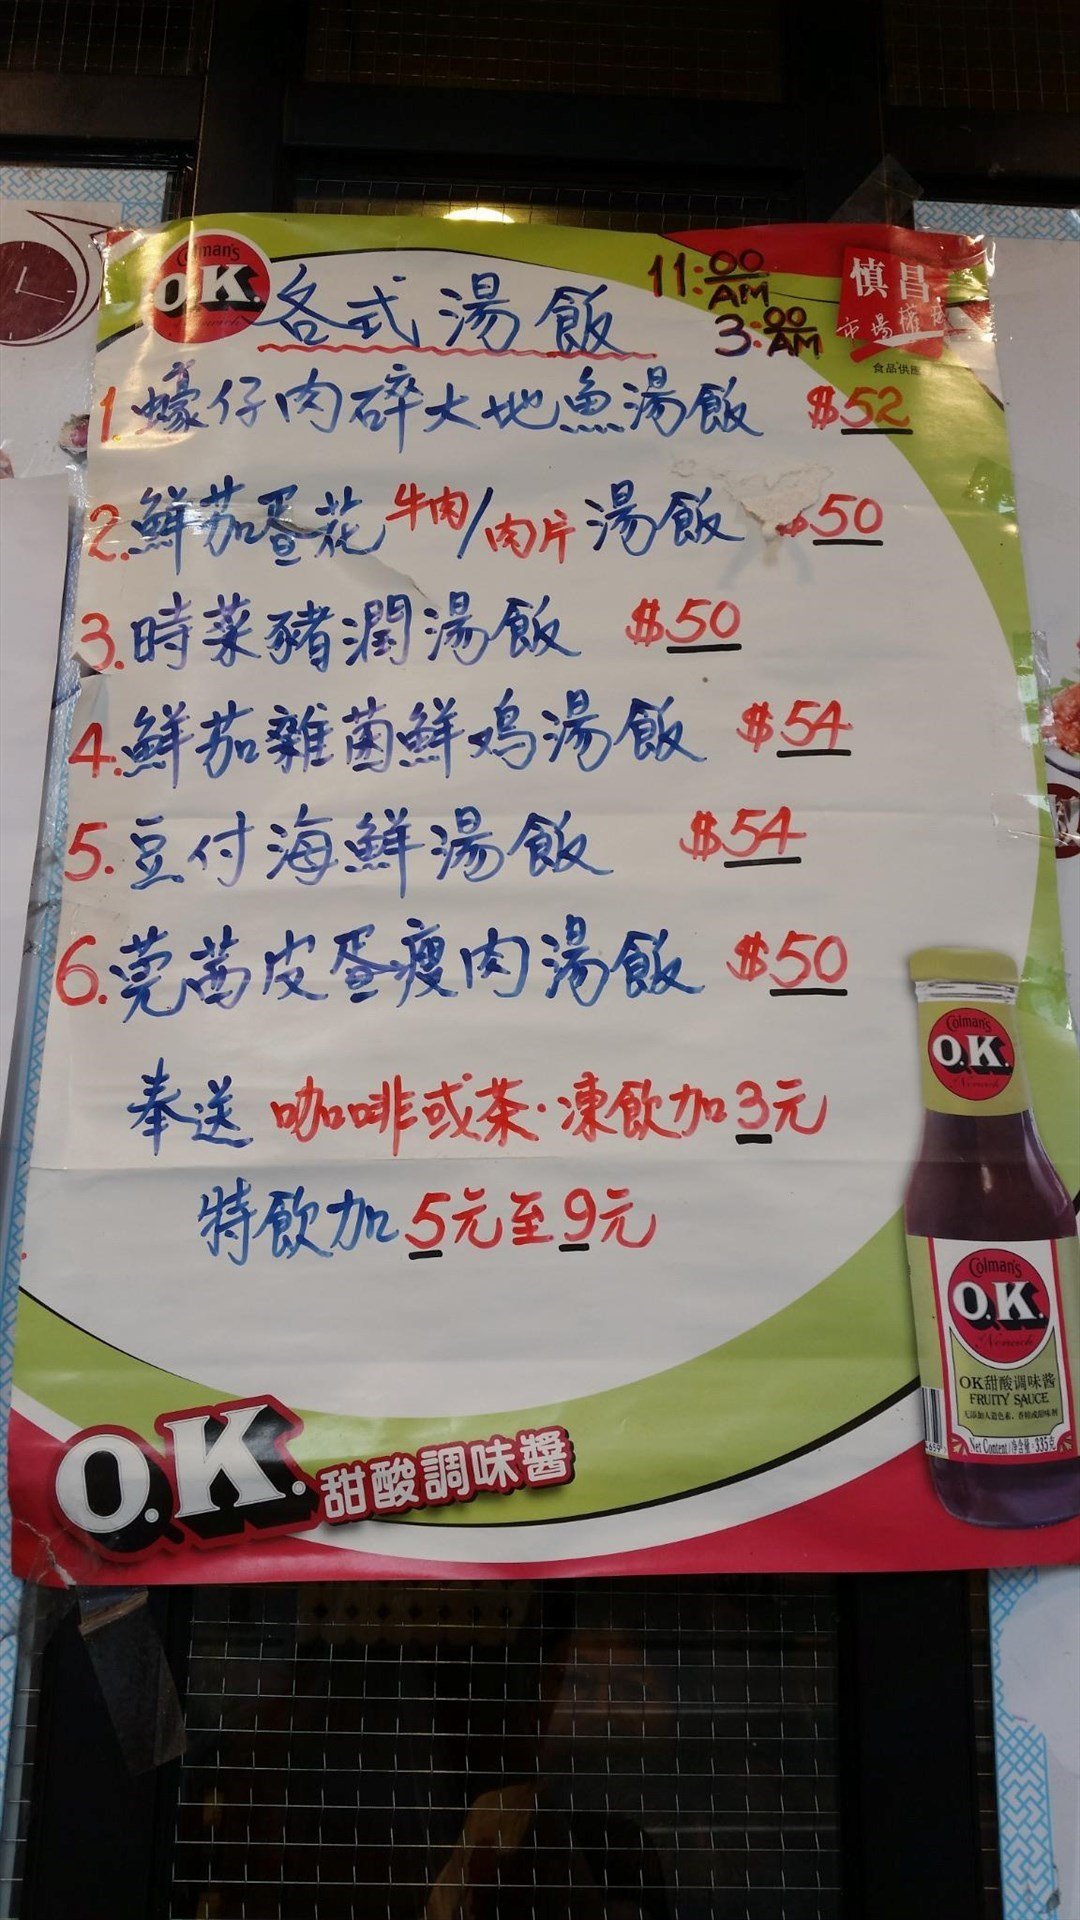 Colman's
O.K.
各式湯飯
11:00 AM
3:00 AM
慎昌
市場權
食品供應
1.蠔仔肉碎大地魚湯飯 $52
2.鮮茄蛋花牛肉/肉片湯飯 $50
3.時菜豬潤湯飯 $50
4.鮮茄雜菌鮮鸡湯飯 $54
5.豆付海鮮湯飯 $54
6.莞茜皮蛋瘦肉湯飯 $50
奉送 咖啡或茶·凍飲加3元
特飲加5元至9元
Colman's
O.K.
Norwich
Colman's
O.K.
Norwich
OK甜酸调味酱
FRUITY SAUCE
Net Content/净含量:335克
O.K. 甜酸調味醬